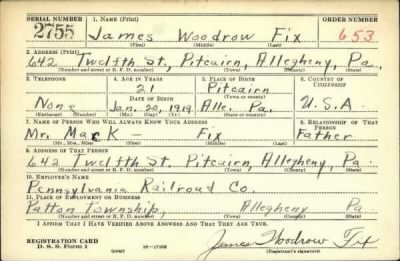 SERIAL NUMBER 1. NAME (Print) ORDER NUMBER
2755 James Woodrow Fix 653
(First) (Middle) (Last)
2. ADDRESS (Print)
642 Twelfth St., Pitcairn, Allegheny, Pa.
(Number and street or R. F. D. number) (Town) (County) (State)
3. TELEPHONE 4. AGE IN YEARS 5. PLACE OF BIRTH 6. COUNTRY OF CITIZENSHIP
21 Pitcairn
DATE OF BIRTH (Town or county)
None Jan. 20, 1919 Alle. Pa. U.S.A
(Exchange) (No.) (Mo.) (Day) (Yr.) (State or country)
7. NAME OF PERSON WHO WILL ALWAYS KNOW YOUR ADDRESS 8. RELATIONSHIP OF THAT PERSON
Mr. Mack - Fix Father
(Mr., Mrs., Miss) (First) (Middle) (Last)
9. ADDRESS OF THAT PERSON
642 Twelfth St. Pitcairn, Allegheny, Pa.
(Number and street or R. F. D. number) (Town) (County) (State)
10. EMPLOYER'S NAME
Pennsylvania Railroad Co.
11. PLACE OF EMPLOYMENT OR BUSINESS
Patton Township, Allegheny Pa
(Number and street or R. F. D. number) (Town) (County) (State)
I AFFIRM THAT I HAVE VERIFIED ABOVE ANSWERS AND THAT THEY ARE TRUE.
REGISTRATION CARD
D. S. S. Form 1 (over) James Woodrow Fix